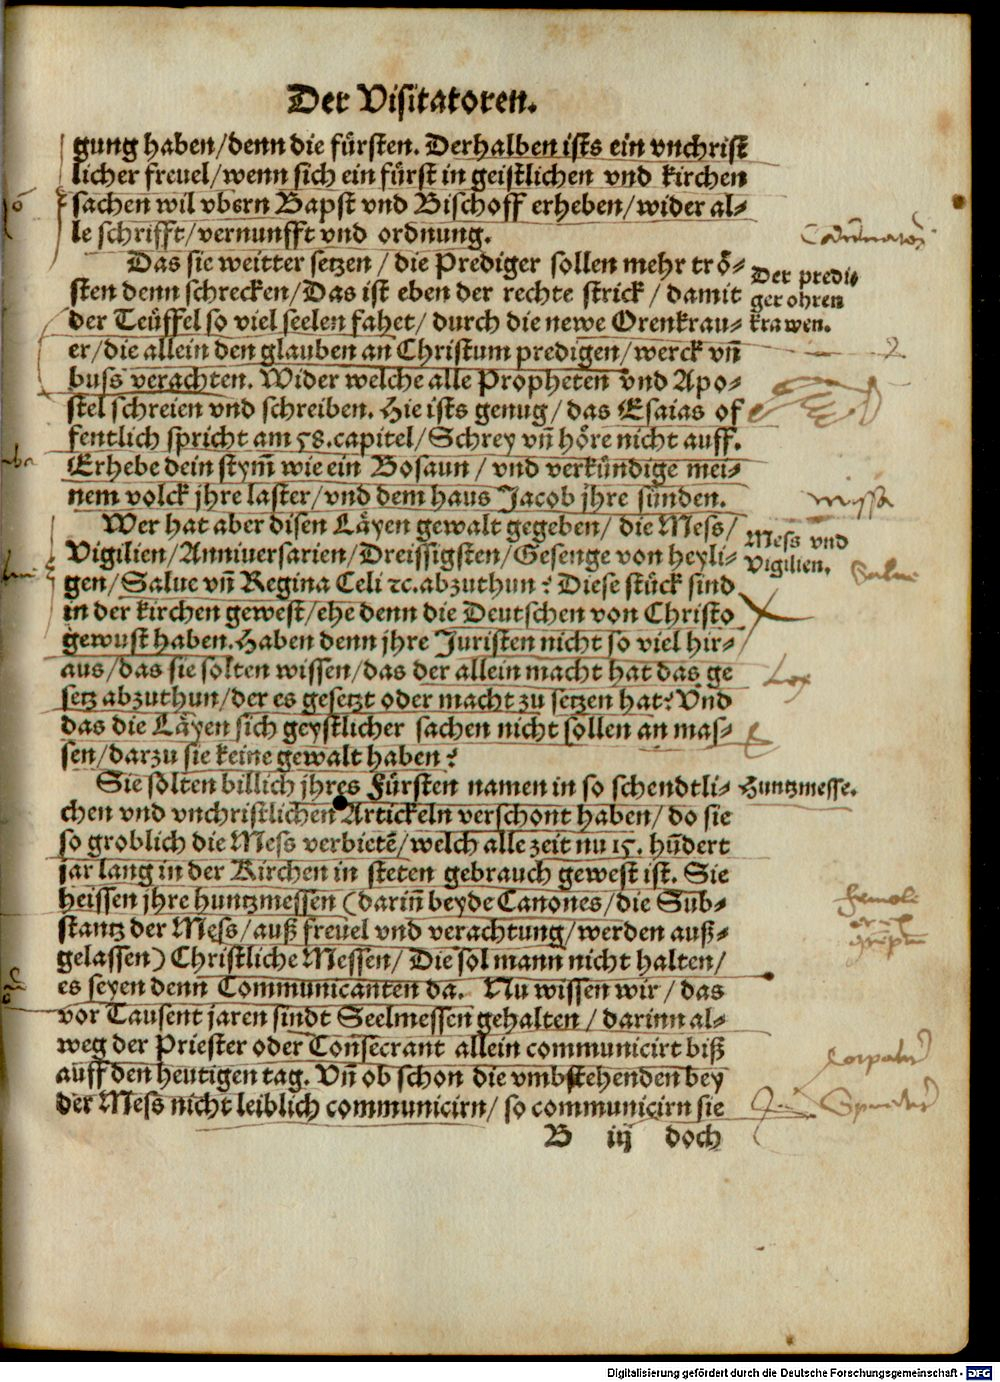 Der Visitatoren.
gung haben/denn die fürsten. Derhalben ists ein vnchrist
licher freuel/wenn sich ein fürst in geistlichen vnd kirchen
sachen wil vbern Bapst vnd Bischoff erheben/wider al⸗
le schrifft/vernunfft vnd ordnung.
Das sie weitter setzen/die Prediger sollen mehr trö⸗
sten denn schrecken/Das ist eben der rechte strick/damit
der Teüffel so viel seelen fahet/durch die newe Orenkrau⸗
er/die allein den glauben an Christum predigen/werck vñ
buss verachten. Wider welche alle Propheten vnd Apo⸗
stel schreien vnd schreiben. Hie ists genug/das Esaias of
fentlich spricht am 58.capitel/Schrey vñ höre nicht auff.
Erhebe dein stym̃ wie ein Bosaun/vnd verkündige mei⸗
nem volck jhre laster/vnd dem haus Jacob jhre sünden.
Der predi⸗
ger ohren
krawen.
Wer hat aber disen Läyen gewalt gegeben/die Mess/
Vigilien/Anniuersarien/Dreissigsten/Gesenge von heyli⸗
gen/Salue vñ Regina Celi ꝛc.abzuthun? Diese stück sind
in der kirchen gewest/ehe denn die Deutschen von Christo
gewust haben. Haben denn jhre Juristen nicht so viel hir⸗
aus/das sie solten wissen/das der allein macht hat das ge
setz abzuthun/der es gesetzt oder macht zu setzen hat? Vnd
das die Läyen sich geystlicher sachen nicht sollen an mas⸗
sen/darzu sie keine gewalt haben?
missa
Mess vnd
Vigilien.
Salue
Lex
Sie solten billich jhres Fürsten namen in so schendtli⸗
chen vnd vnchristlichen Artickeln verschont haben/do sie
so groblich die Mess verbietẽ/welch alle zeit nu 15. hũdert
jar lang in der Kirchen in steten gebrauch gewest ist. Sie
heissen jhre huntzmessen (dariñ beyde Canones/die Sub⸗
stantz der Mess/auß freuel vnd verachtung/werden auß⸗
gelassen) Christliche Messen/Die sol mann nicht halten/
es seyen denn Communicanten da. Nu wissen wir/das
vor Tausent jaren sindt Seelmessen gehalten/darinn al⸗
weg der Priester oder Consecrant allein communicirt biß
auff den heutigen tag. Vñ ob schon die vmbstehenden bey
der Mess nicht leiblich communicirn/so communicirn sie
Huntzmesse.
B iij doch
Digitalisierung gefördert durch die Deutsche Forschungsgemeinschaft - DFG